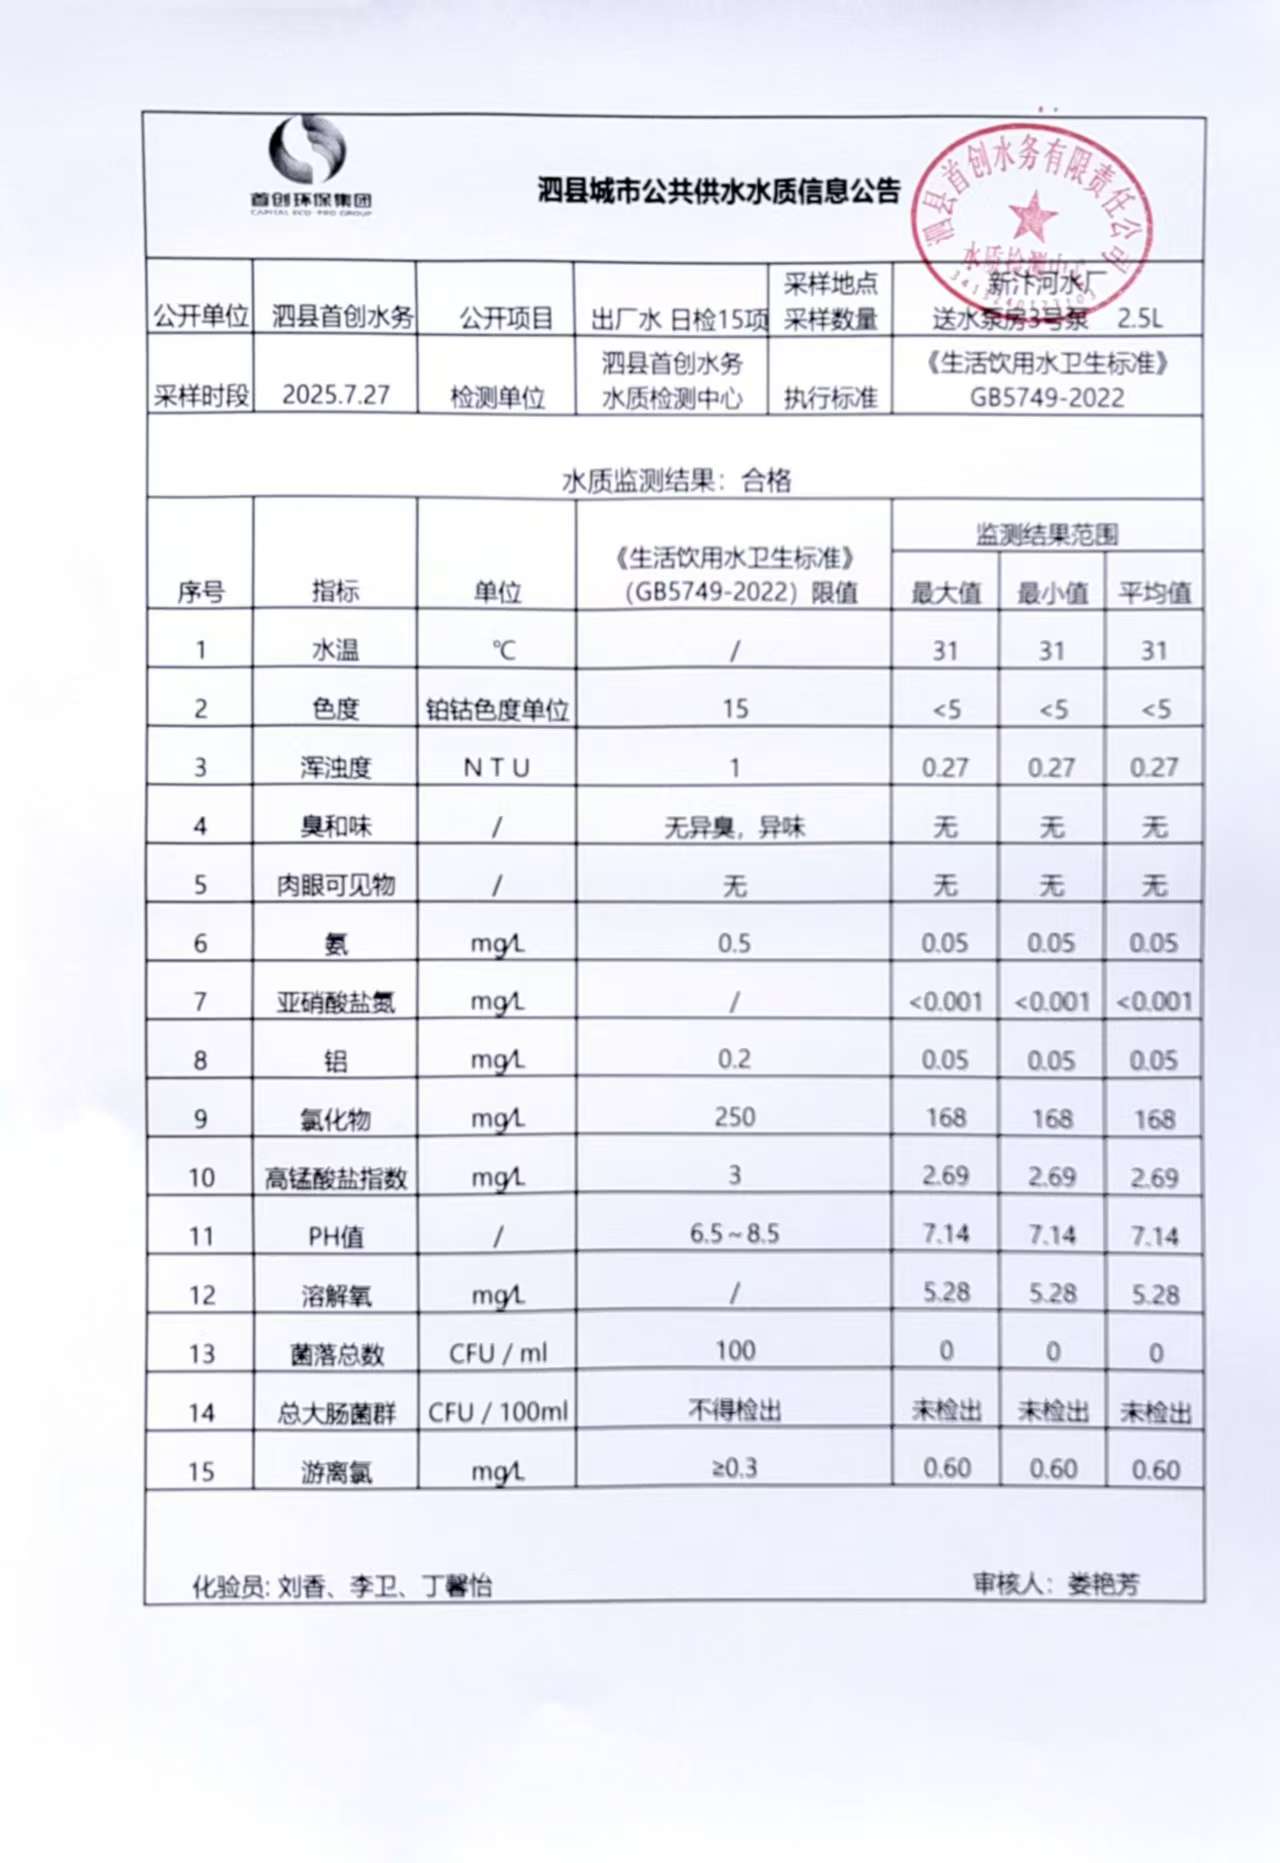 首创环保集团
CAPITAL ECO-PRO GROUP
泗县城市公共供水水质信息公告
泗县首创水务有限责任公司
水质检测中心
公开单位 泗县首创水务 公开项目 出厂水 日检15项 采样地点 采样数量 新汴河水厂 送水泵房3号泵 2.5L
采样时段 2025.7.27 检测单位 泗县首创水务 水质检测中心 执行标准 《生活饮用水卫生标准》 GB5749-2022
水质监测结果：合格
序号 指标 单位 《生活饮用水卫生标准》 （GB5749-2022）限值 监测结果范围
最大值 最小值 平均值
1 水温 ℃ / 31 31 31
2 色度 铂钴色度单位 15 <5 <5 <5
3 浑浊度 N T U 1 0.27 0.27 0.27
4 臭和味 / 无异臭，异味 无 无 无
5 肉眼可见物 / 无 无 无 无
6 氨 mg/L 0.5 0.05 0.05 0.05
7 亚硝酸盐氮 mg/L / <0.001 <0.001 <0.001
8 铝 mg/L 0.2 0.05 0.05 0.05
9 氯化物 mg/L 250 168 168 168
10 高锰酸盐指数 mg/L 3 2.69 2.69 2.69
11 PH值 / 6.5~8.5 7.14 7.14 7.14
12 溶解氧 mg/L / 5.28 5.28 5.28
13 菌落总数 CFU / ml 100 0 0 0
14 总大肠菌群 CFU / 100ml 不得检出 未检出 未检出 未检出
15 游离氯 mg/L ≥0.3 0.60 0.60 0.60
化验员: 刘香、李卫、丁馨怡 审核人：娄艳芳